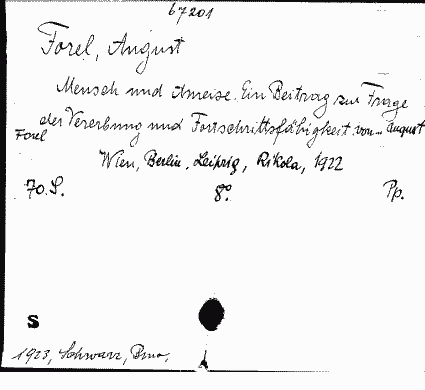 67201
Forel, August
Mensch und Ameise. Ein Beitrag zur Frage
der Vererbung und Fortschrittsfähigkeit von August
Forel
Wien, Berlin, Leipzig, Rikola, 1922
70. S. 8° Pp.
S
1923, Schwarz, Brno,